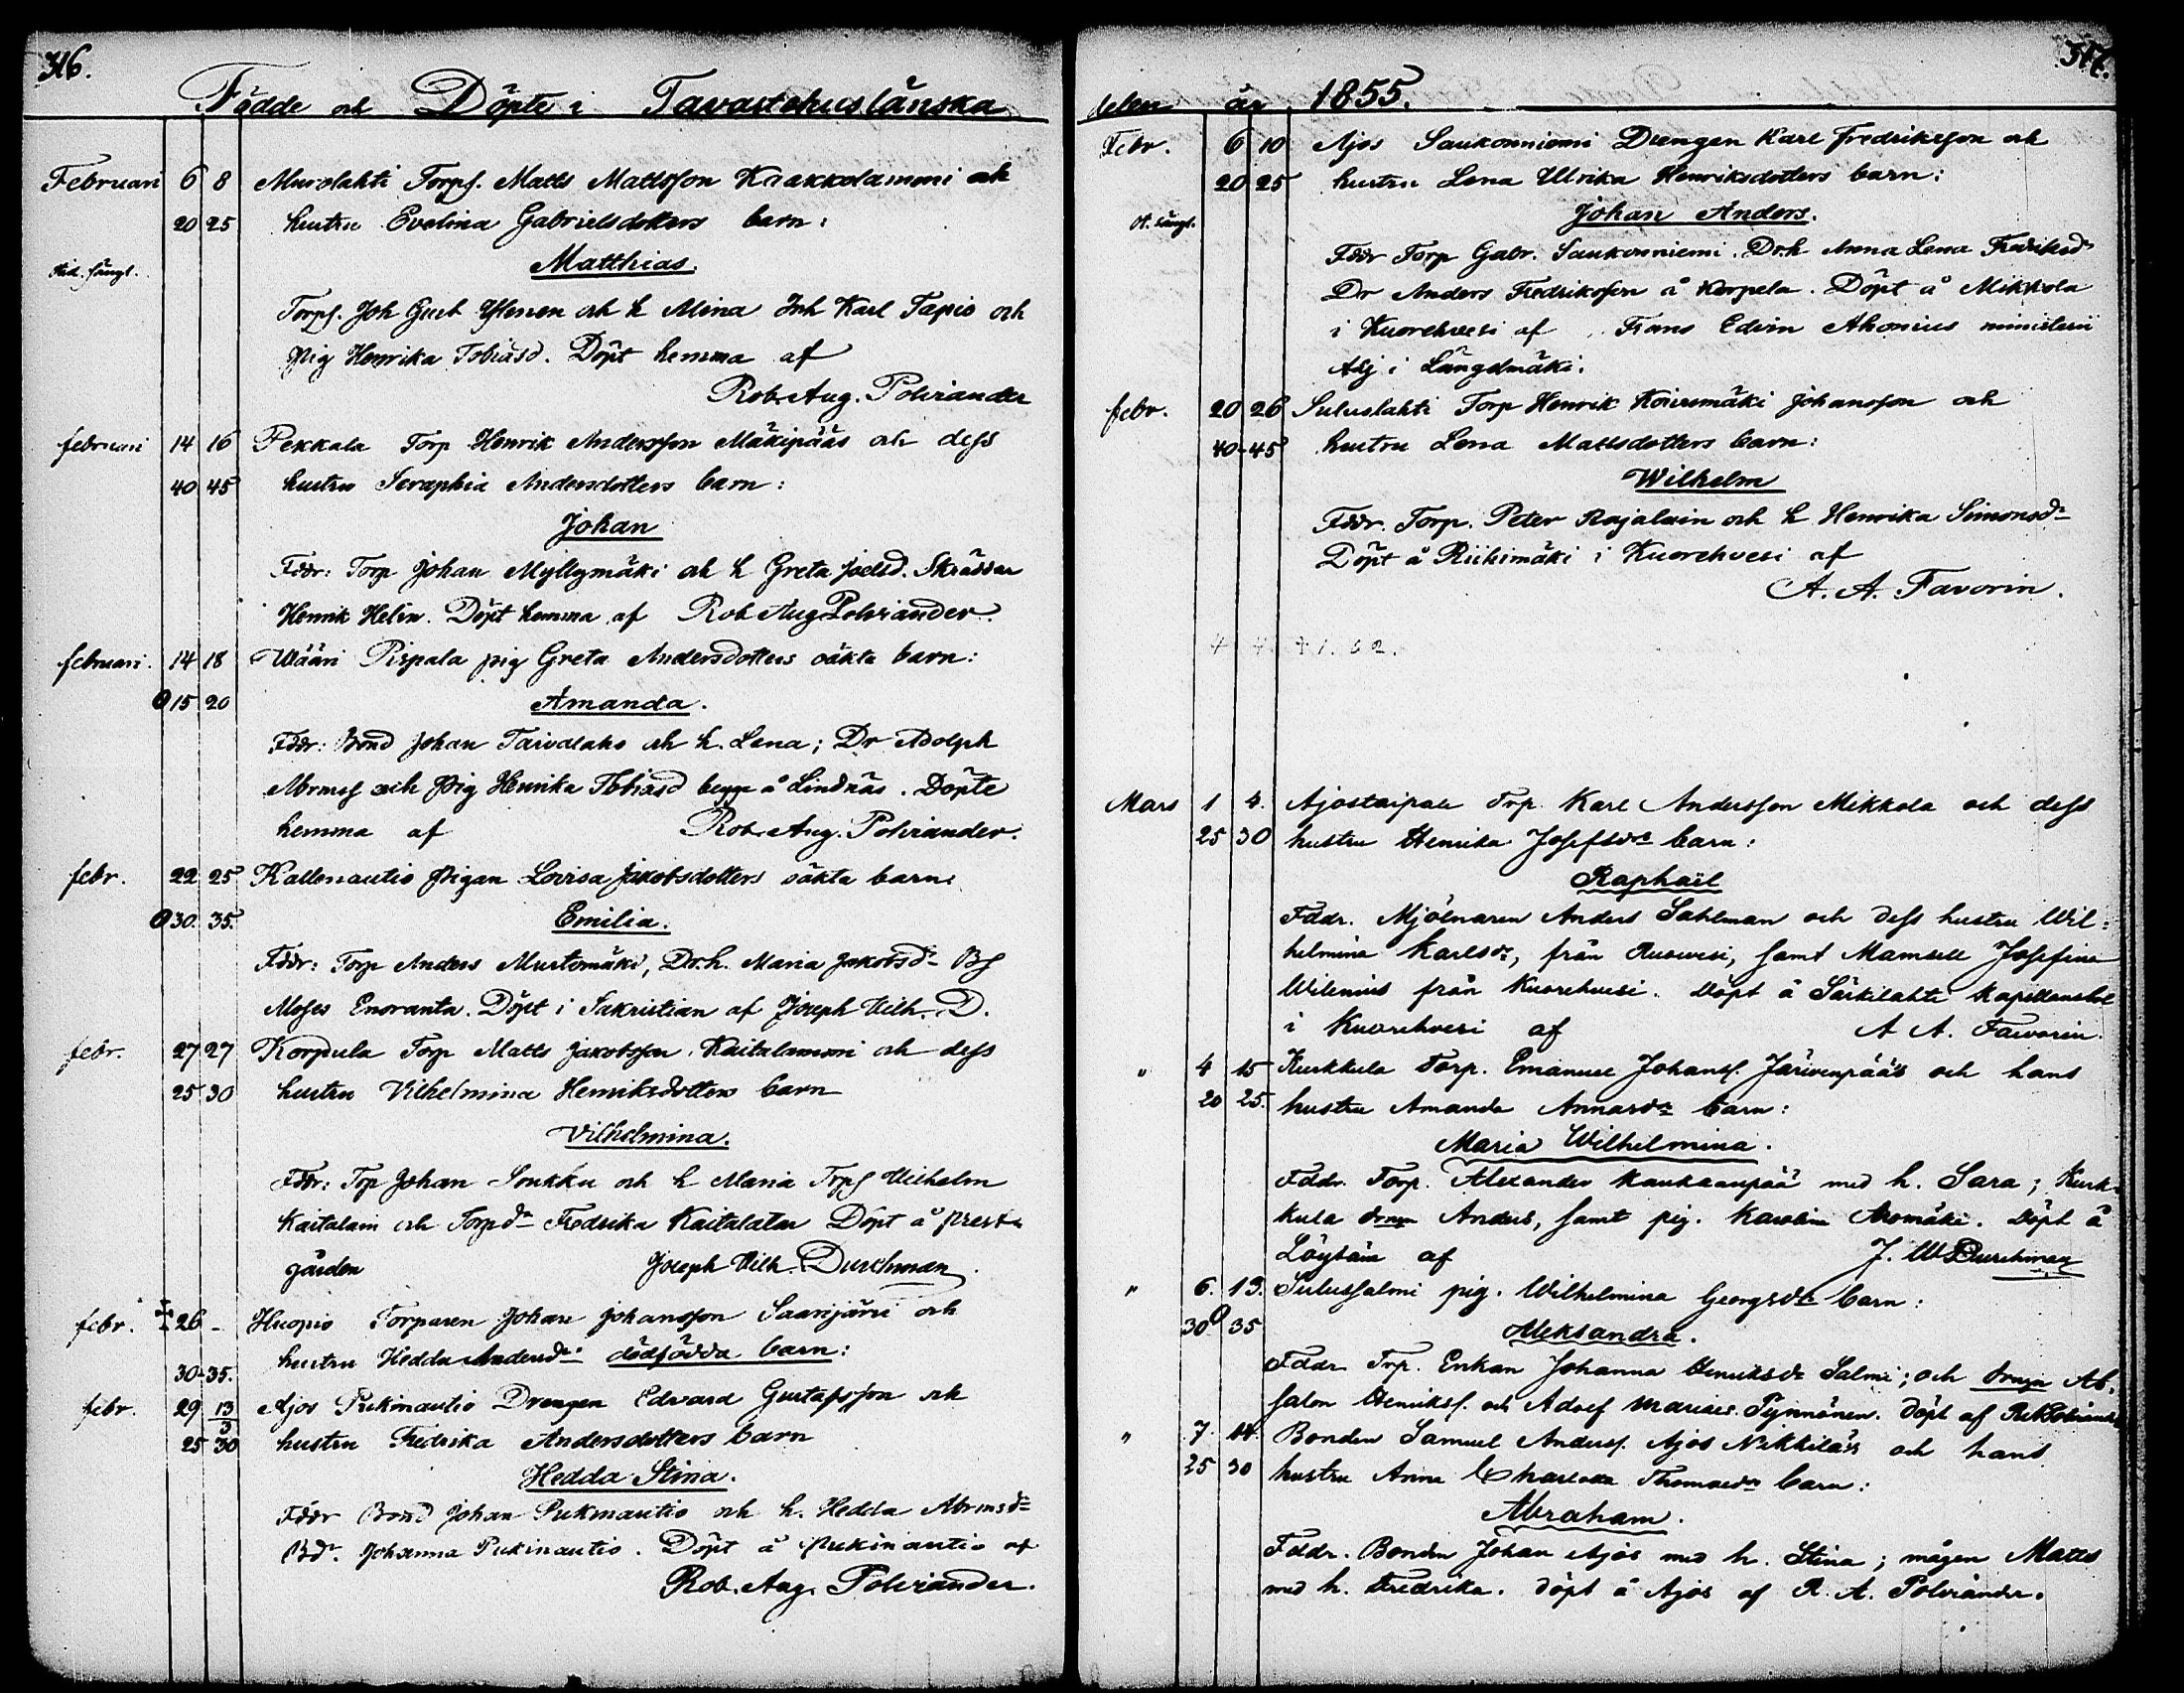 316.
Födde och Döpte i Tavastehuslänska
Februari 6 8 Murolahti Torps. Matts Mattsson Kaakkolammi och
20 25 hustru Evelina Gabrielsdotters barn:
Matthias.
Torps. Joh Gust och h Mina Inh Karl Tapio och
Pig Henrika Tobiasd. Döpt hemma af
Rob. Aug. Polviander
februari 14 16 Pekkala Torp Henrik Andersson Mäkipääs och dess
40 45 hustru Seraphia Andersdotters barn:
Johan
Fddr: Torp Johan Myllymäki och h Greta Joelsd. Skräddar
Henrik Helin. Döpt hemma af Rob Aug Polviander.
februari. 14 18 Wääri Pispala pig Greta Andersdotters oäkta barn:
15 20 Amanda.
Fddr: Bond Johan Taivalaho och h. Lena; Dr Adolph
Abrms och Pig Henrika Tobiasd begge å Lindnäs. Döpte
hemma af Rob. Aug. Polviander.
febr. 22 25 Kallenautio Pigan Lovisa Jakobsdotters oäkta barn:
30. 35. Emilia.
Fddr: Torp Anders Murtomäki, Dr.h. Maria Jakobsdr Bs
Moses Enoranta. Döpt i Sakristian af Joseph Vilh. D.
febr. 27 27 Korpula Torp Matts Jakobsson Kaitalammi och dess
25 30 hustru Vilhelmina Henriksdotters barn
Vilhelmina.
Fddr: Torp Johan Soukku och h Maria Trps Vilhelm
Kaitalain och Torpdr Fredrika Kaitalatar Döpt å prest
gården Joseph Vilh. Durchman.
febr. 26 - Huopio Torparen Johan Johansson Saarijärvi och
30-35. hustru Hedda Andersdrs dödfödda barn:
febr. 29 13/3 Ajos Pukinautio Drengen Edvard Gustafsson och
25 30 hustru Fredrika Andersdotters barn
Hedda Stina.
Fddr Bond Johan Pukinautio och h. Hedda Abrmsdr
Bdr. Johanna Pukinautio. Döpt å Pukinautio af
Rob. Aug. Polviander.
317.
delen år 1855.
Febr. 6 10 Ajos Saukonniemi Drengen Karl Fredriksson och
20 25 hustru Lena Ulrika Henriksdotters barn:
Johan Anders.
Fddr Torp Gabr. Saukonniemi. Dr.h Anna Lena Fredriksdr
Dr Anders Fredriksson å Korpela. Döpt å Mikkola
i Kuorehvesi af Frans Edvin Ahonius ministerii
Adj i Längelmäki.
febr. 20 26 Suluslahti Torp Henrik Koivumäki Johansson och
40-45 hustru Lena Mattsdotters barn:
Wilhelm
Fddr. Torp. Peter Rajalain och h Henrika Simonsdr
Döpt å Riihimäki i Kuorehvesi af
A. A. Favorin.
Mars 1 4. Ajostaipale Trp. Karl Andersson Mikkola och dess
25 30 hustru Henrika Josefsdrs barn:
Raphaël
Fddr. Mjölnaren Anders Sahlman och dess hustru Wil=
helmina Karlsdr, från samt Mamsell Josefina
Wilenius från Kuorehvesi. Döpt å Särkilahti Kapellansbol
i Kuorehvesi af A A. Favorin.
" 4 15 Kurkkula Torp. Emanuel Johanss. Järvenpääs och hans
20 25. hustru Amanda Annasdrs barn:
Maria Wilhelmina.
Fddr. Torp. Alexander Kaukaanpää med h. Sara; Kurk-
kula drng Anders, samt pig. Karolina Aromäki. Döpt å
Löytäin af J. W Durchman
" 6. 13. Sulussalmi pig. Wilhelmina Georgsdrs barn:
30 35 Aleksandra.
Fddr Trp. Enkan Johanna Henriksdr Salmi; och drng Ab-
salon Henrikss. och Adolf Tynnönen. Döpt af
" 7. 14. Bonden Samuel Anderss. Ajos Nikkiläs och hans
25 30 hustru Anna Charlotta Thomasdrs barn:
Abraham.
Fddr. Bonden Johan Ajos med h. Stina; mågen Matts
med h. Fredrika. Döpt å Ajos af R. A. Polviander.